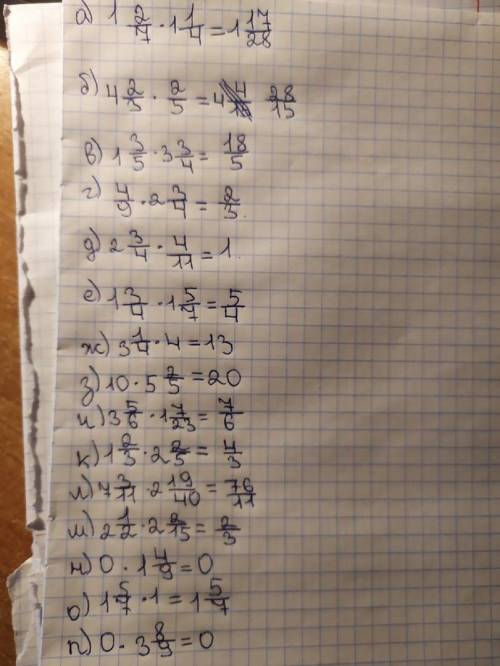 а) 1 2/7 · 1 1/4 = 1 17/28
б) 4 2/3 · 2/5 = 28/15
в) 1 3/5 · 3 3/4 = 18/5
г) 4/9 · 2 3/4 = 2/3
д) 2 3/4 · 4/11 = 1
е) 1 3/4 · 1 5/7 = 5/4
ж) 3 1/4 · 4 = 13
з) 10 · 5 2/5 = 20
и) 3 5/6 · 1 7/23 = 7/6
к) 1 2/3 · 2 2/5 = 4/3
л) 7 3/11 · 2 19/40 = 76/11
м) 2 1/2 · 2 2/15 = 2/3
н) 0 · 1 4/9 = 0
о) 1 5/7 · 1 = 1 5/7
п) 0 · 3 8/9 = 0